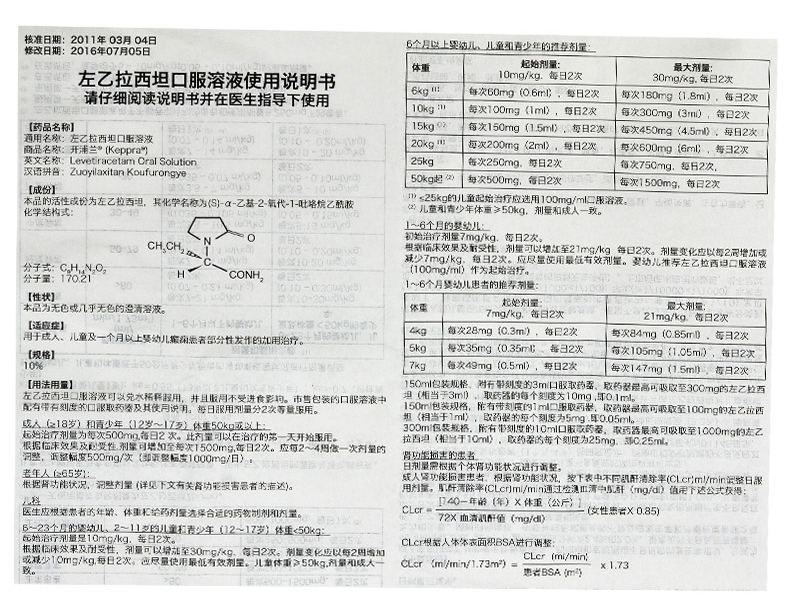 核准日期：2011年 03月 04日
修改日期：2016年07月05日
左乙拉西坦口服溶液使用说明书
请仔细阅读说明书并在医生指导下使用
【药品名称】
通用名称：左乙拉西坦口服溶液
商品名称：开浦兰® (Keppra®)
英文名称：Levetiracetam Oral Solution
汉语拼音：Zuoyilaxitan Koufurongye
【成份】
本品的活性成份为左乙拉西坦，其化学名称为(S)-α-乙基-2-氧代-1-吡咯烷乙酰胺
化学结构式：
N O
CH₃CH₂
H CONH₂
分子式：C₈H₁₄N₂O₂
分子量：170.21
【性状】
本品为无色或几乎无色的澄清溶液。
【适应症】
用于成人、儿童及一个月以上婴幼儿癫痫患者部分性发作的加用治疗。
【规格】
10%
【用法用量】
左乙拉西坦口服溶液可以兑水稀释服用，并且服用不受进食影响。市售包装的口服溶液中
配有带有刻度的口服取药器及其使用说明。每日服用剂量分2次等量服用。
成人 (≥18岁) 和青少年 (12岁～17岁) 体重50kg或以上：
起始治疗剂量为每次500mg,每日2 次。此剂量可以在治疗的第一天开始服用。
根据临床效果及耐受性,剂量可增加至每次1500mg,每日2次。应每2～4周做一次剂量的
调整，调整幅度500mg/次（即调整幅度1000mg/日）。
老年人 (≥65岁)：
根据肾功能状况，调整剂量（详见下文有关肾功能损害患者的描述）。
儿科
医生应根据患者的年龄、体重和给药剂量选择合适的药物制剂和剂量。
6～23个月的婴幼儿、2～11岁的儿童和青少年（12～17岁）体重<50kg:
起始治疗剂量是10mg/kg，每日2次。
根据临床效果及耐受性，剂量可以增加至30mg/kg，每日2次。剂量变化应以每2周增加
或减少10mg/kg,每日2次。应尽量使用最低有效剂量。儿童体重≥50kg,剂量和成人一
致。
6个月以上婴幼儿、儿童和青少年的推荐剂量：
体重 起始剂量： 10mg/kg，每日2次 最大剂量： 30mg/kg, 每日2次
6kg ⁽¹⁾ 每次60mg（0.6ml），每日2次 每次180mg（1.8ml），每日2次
10kg ⁽¹⁾ 每次100mg（1ml），每日2次 每次300mg（3ml），每日2次
15kg ⁽¹⁾ 每次150mg（1.5ml），每日2次 每次450mg（4.5ml），每日2次
20kg ⁽¹⁾ 每次200mg（2ml），每日2次 每次600mg（6ml），每日2次
25kg 每次250mg，每日2次 每次750mg，每日2次，
50kg起 ⁽²⁾ 每次500mg，每日2次 每次1500mg，每日2次
⁽¹⁾ ≤25kg的儿童起始治疗应选用100mg/ml口服溶液。
⁽²⁾ 儿童和青少年体重≥50kg，剂量和成人一致。
1～6个月的婴幼儿：
初始治疗剂量7mg/kg，每日2次。
根据临床效果及耐受性，剂量可以增加至21mg/kg 每日2次。剂量变化应以每2周增加或
减少7mg/kg，每日2次。应尽量使用最低有效剂量。婴幼儿推荐左乙拉西坦口服溶液
（100mg/ml）作为起始治疗。
1～6个月婴幼儿患者的推荐剂量：
体重 起始剂量： 7mg/kg，每日2次 最大剂量： 21mg/kg，每日2次
4kg 每次28mg（0.3ml），每日2次 每次84mg（0.85ml），每日2次
5kg 每次35mg（0.35ml），每日2次 每次105mg（1.05ml），每日2次
7kg 每次49mg（0.5ml），每日2次 每次147mg（1.5ml），每日2次
150ml包装规格，附有带刻度的3ml口服取药器，取药器最高可吸取至300mg的左乙拉西
坦（相当于3ml），取药器的每个刻度为10mg,即0.1ml。
150ml包装规格，附有带刻度的1ml口服取药器，取药器最高可吸取至100mg的左乙拉西坦
（相当于1ml），取药器的每个刻度为5mg，即0.05ml。
300ml包装规格，附有带刻度的10ml口服取药器，取药器最高可吸取至1000mg的左乙
拉西坦（相当于10ml），取药器的每个刻度为25mg，即0.25ml。
肾功能损害的患者：
日剂量需根据个体肾功能状况进行调整。
成人肾功能损害患者，根据肾功能状况，按下表中不同肌酐清除率(CLcr)ml/min调整日服
用剂量。肌酐清除率(CLcr)ml/min通过检测血清中肌酐（mg/dl）值用下述公式获得：
CLcr = [140－年龄（年）X 体重（公斤）] / 72X 血清肌酐值（mg/dl） (女性患者X 0.85)
CLcr根据人体体表面积BSA进行调整：
CLcr（ml/min/1.73m²）= CLcr（ml/min） / 患者BSA (m²) x 1.73